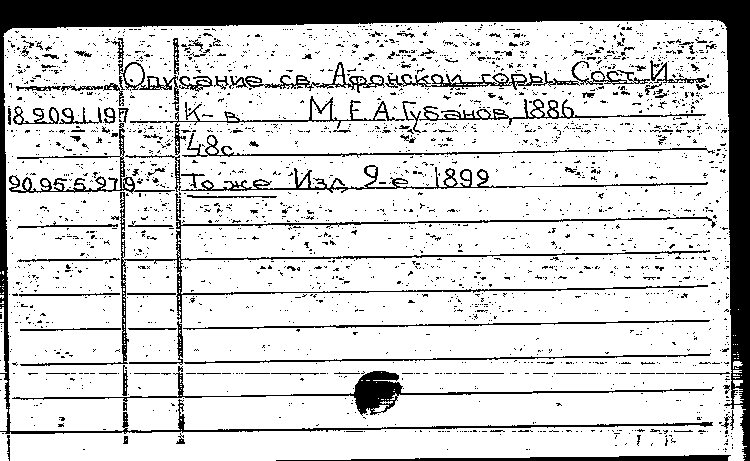 Описание св. Афонской горы. Сост. И.
18.209.1.197 К-в М., Е. А. Губанов, 1886
48с.
20.95.5.279. То же Изд. 9-е 1899